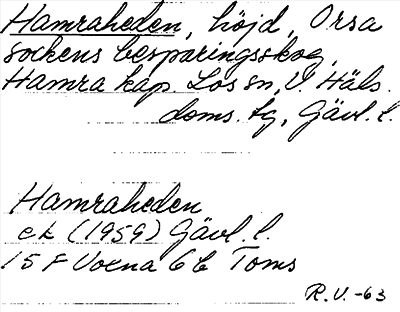 Hamraheden, höjd, Orsa
sockens besparingsskog,
Hamra kap. Los sn, V. Häls.
doms. tg, Gävl. l.
Hamraheden
ek (1959) Gävl. l.
15 F Voxna 6 b Toms
R.V.-63